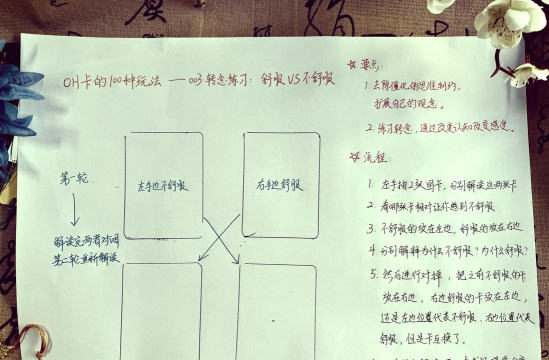 OH卡的100种玩法 —— 003 转念练习：舒服 VS 不舒服
第一轮
左手边不舒服
右手边舒服
解读完两者对调
第二轮重新解读
☆ 要点：
1. 去除僵化的思维制约，
扩展自己的观念。
2. 练习转念，通过改变认知改变感受。
☆ 流程：
1. 左手抽2张图卡，分别解读这两张卡
2. 看哪张卡相对让你感到不舒服
3. 不舒服的放在左边，舒服的放在右边
4. 分别解释为什么不舒服？为什么舒服？
5. 然后进行对掉，把之前不舒服的卡
放在右边，右边舒服的卡放在左边，
还是左边位置代表不舒服、右边位置代表
舒服，但是卡互换了。